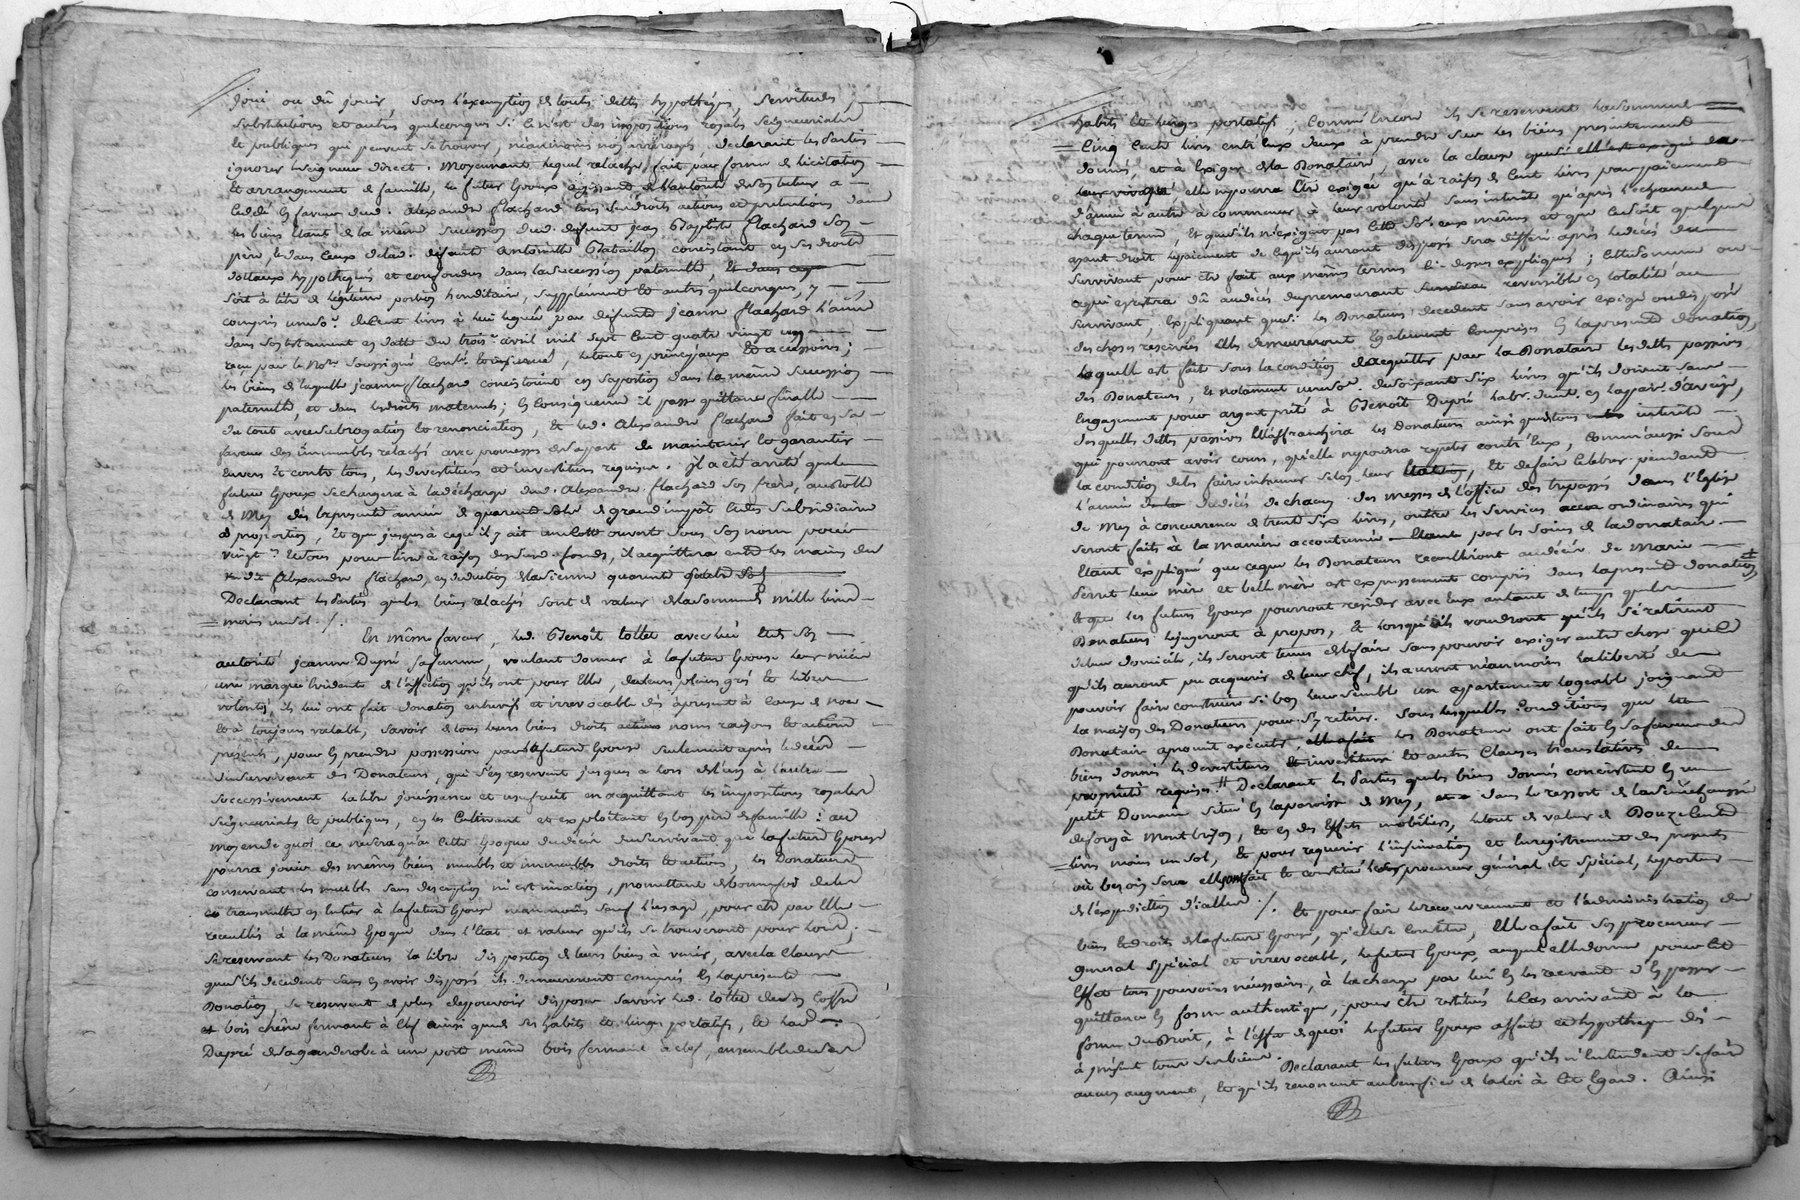 joui ou dû jouir, sous l'exemption de toutes dettes hypothéques, servitudes,
substitutions et autres quelconques si ce n'est des impositions royales seigneuriales
et publiques qui peuvent se trouver, néanmoins nos arrérages déclarant les parties
ignorer le seigneur direct. moyennant lequel relache, fait par forme de licitation
et arrangement de famille, le futur Epoux agissant de l'autorité de son tuteur a
cedé en faveur dud. alexandre flachard tous ses droits actions et pretentions dans
les biens étant de la meme succession dud. defunt jean Baptiste flachard son
père et dans ceux de lad. defunte antoinette Bataillon consistant en ses droits
dottaux hypothequés et confondus dans la succession paternelle
soit à titre de légitime portion hereditaire, suppplément et autres quelconques, y
compris une so.e de cent livres à lui leguée par defunte jeanne flachard l'ainée
dans son testament en datte du trois avril mil sept cent quatre vingt un
reçu par le No.re soussigné, le tout en principaux et accessoires;
les biens de laquelle jeanne flachard consistoint en sa portion dans la même succession
paternelle, et dans les droits maternels; en conséquence il passe quittance finalle
du tout avec subrogation et renonciation, et led. alexandre flachard fait en sa
faveur des immeubles relachés avec promesses de sa part de maintenir et garantir
envers et contre tous, les devestitures et investitures requises. il a été arreté que le
futur Epoux se chargera à la décharge dud. alexandre flachard son frere, au rolle
de Mey dès la presente année de quarente sols de grand impôt cottes subsidiaire
à proportion, et que jusques à ce qu'il y ait une cotte ouverte sous son nom pour
vingt sous pour livre à raison desd. fonds, il acquittera entre les mains du
dit alexandre flachard, en deduction de la sienne quarente quatre sols
Declarant les parties que les biens relachés sont de valeur de la somme de mille livres
moins un sol. /.
En même faveur, led. Benoît tollet avec lui et de son
autorité jeanne Dupré sa femme, voulant donner à la future Epouse leur niéce
une marque évidente de l'affection qu'ils ont pour elle, de leurs pleins gré et libre
volonté, ils lui ont fait donation entrevifs et irrevocable dès à present à cause de noce
et à toujours valable, savoir de tous leurs biens droits actions noms raisons et actions
presents, pour en prendre possession par la future Epouse seulement après le décès
du survivant des Donateurs, qui s'en reservent jusques a lors de l'un à l'autre
successivement la libre jouissance et usufruit en acquittant les impositions royales
seigneuriales et publiques, en les cultivant et exploitant en bon père de famille: au
moyen de quoi ce ne sera qu'a cette époque du decès du survivant que la future Epouse
pourra jouir des mêmes biens meubles et immeubles droits et actions, les Donateurs
conservant les meubles sans description ni estimation, promettent de bonne foi de les
transmettre en entier à la future Epouse neanmoins sauf l'usage, pour etre par elle
recueillis à la même époque dans l'etat et valeur qu'ils se trouveront pour lors;
se reservant les Donateurs la libre disposition de leurs biens à venir, avec la clause
que s'ils decedent sans en avoir disposé ils demeureront compris en la presente
Donation, se reservent de plus de pouvoir disposer savoir led. tollet de son coffre
et bois chêne fermant à clef ainsi que de ses habits et linges portatifs, et lad.
Dupré de sa garderobe à une porte même bois fermant à clef, ensemble de ses
habits et linges portatifs; comm'encore ils se reservent la somme
cinq cents livres entr'eux deux à prendre sur les biens presentement
donnés, et à exiger de la Donataire, avec la clause
elle ne pourra être exigée qu'à raison de cent livres par paiement
d'année à autre à commencer à leur volonté sans intérêt qu'après l'echeance
chaque terme, et que s'ils n'exigent pas cette So.e eux mêmes et que ce soit quelqu'un
ayant droit le paiement de ce qu'ils auront disposé sera differé après le decès du
survivant pour être fait aux mêmes termes ci-dessus expliqués; cette somme ou
ce qui en restera dû au decès du premourant reversible en totalité au
survivant, expliquant que si les Donateurs decedent sans avoir exigé ou disposé
des choses reservées elles demeureront également comprises en la presente donation,
laquelle est fait sous la condition d'acquitter par la Donataire les dettes passives
des Donateurs, et notament une so.e de soixante six livres qu'ils doivent sans
engagement pour argent prêté à Benoît Dupré habit. dud. en la par. d'aveize,
desquelles dettes passives elle affranchira les Donateurs ainsi que de tous intérêts
qui pourront avoir cours, qu'elle ne pourra repeter contr'eux, comm'aussi sous
la condition de les faire inhumer selon leur, et de faire celebrer pendant
l'année du decès de chacun des messes de l'office des trepassés dans l'Eglise
de Mey à concurrence de trente six livres, outre les services ordinaires qui
seront faits à la manière accoutumée par les soins de la donataire
Etant expliqué que ce que les Donateurs recueilliront au décès de Marie
Serret leur mère et belle mère est expressement compris dans la presente donation
et que les futurs Epoux pourront resider avec eux autant de temps que les
Donateurs le jugeront à propos, et lorsqu'ils voudront qu'ils se retirent
de leur domicile, ils seront tenus de le faire sans pouvoir exiger autre chose que ce
qu'ils auront pu acquerir de leur chef, ils auront néanmoins la liberté de
pouvoir faire construire si bon leur semble un appartement logeable joignant
la maison des Donateurs pour s'y retirer. Sous lesquelles conditions que la
Donataire a promit exécuter, les Donateurs ont fait en sa faveur des
biens donnés les devestitures et investitures et autres Clauses translatives de
propriété requises. # Declarant les Parties que les biens donnés consistent en un
petit Domaine situé en la paroisse de Mey, et dans le ressort de la Sénéchaussée
de forez à Montbrison, et en des effets mobiliers, le tout de valeur de Douze cents
livres moins un sol, et pour requerir l'insinuation et Enregistrement des presents
où besoin sera elles ont fait et constitué leur procureur général et spécial, le porteur
de l'expédition d'icelles /. Et pour faire le recouvrement et l'administration des
biens et droits de la future Epouse, qu'elle se constitue, elle a fait son procureur
General spécial et irrevocable, le futur Epoux, auquel elle donne pour cet
effet tous pouvoirs nécessaires, à la charge par lui en les recevant d'en passer
quittance en forme authentique, pour être restitués le cas arrivant à la
forme du Droit, à l'effet de quoi le futur Epoux affecte et hypotheque dès
à présent tous ses biens. Declarant les futurs Epoux qu'ils n'entendent se faire
aucun augment, et qu'ils renoncent au benefice de la loi à cet égard. Ainsi